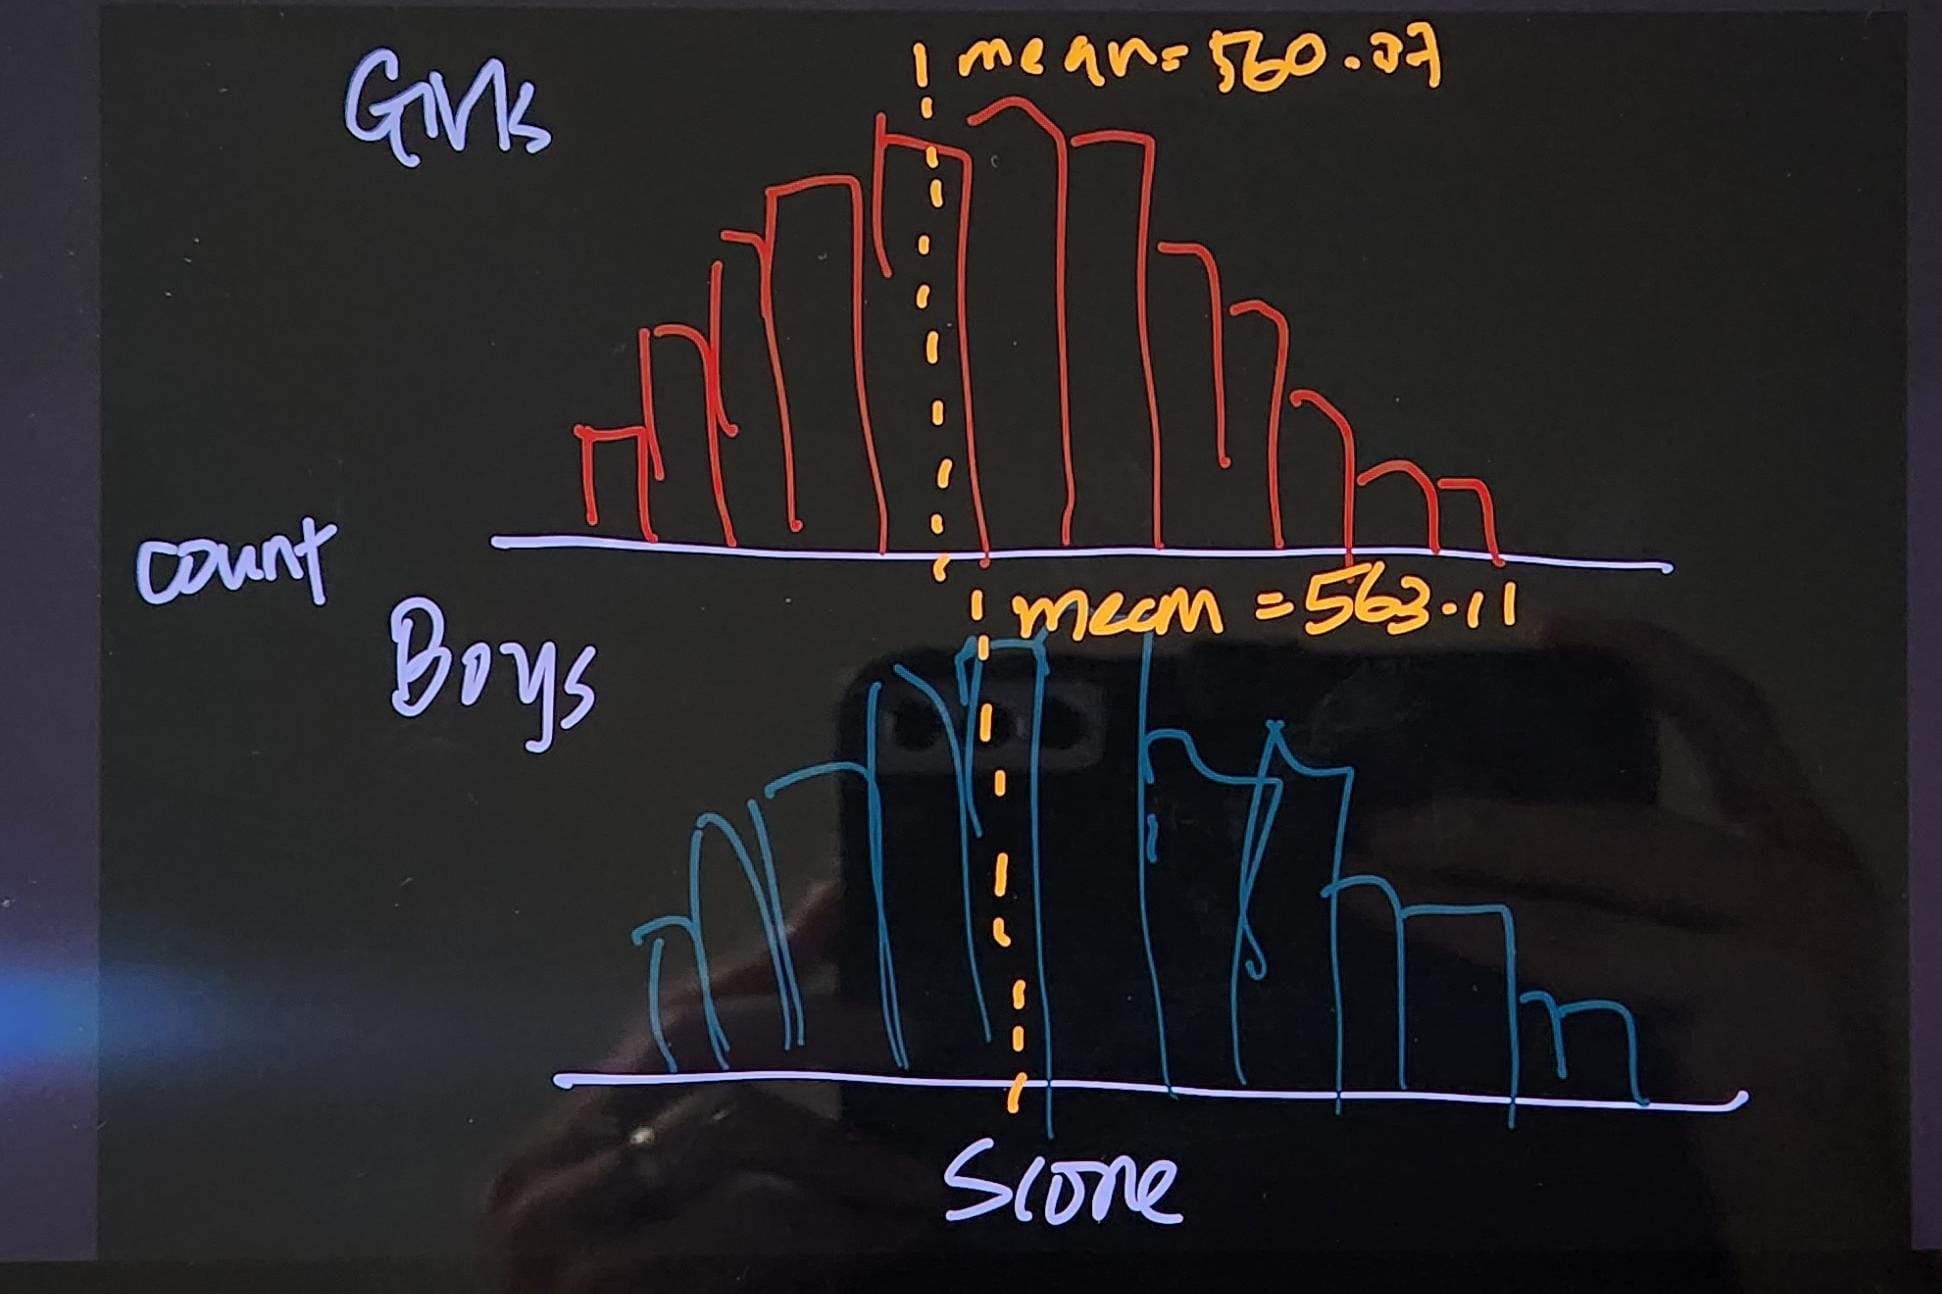 Girls
mean = 560.37
count
Boys
mean = 563.11
Score